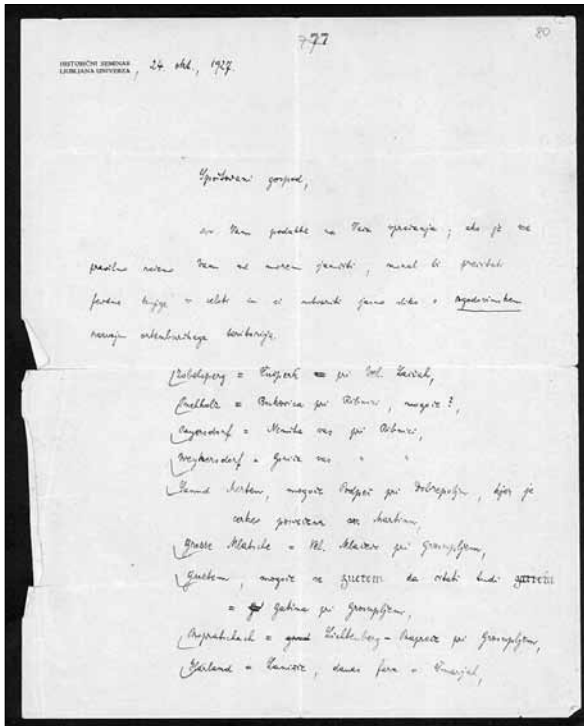 77
80
HISTORIČNI SEMINAR
LJUBLJANA UNIVERZA, 24. okt., 1927.
Spoštovani gospod,
Vam podatke na Vaša vprašanja; ako je vse
pravilno rešeno Vam ne morem jamčiti, moral bi
knjige v celoti in si ustvariti jasno sliko o zgodovinskem
razvoju ortenburškega teritorija.
Zobelsperg = Čušperk = pri Vel. Laščah,
Puchholz = Bukovica pri Ribnici, mogoče?,
Payersdorf = Nemška vas pri Ribnici,
Weykersdorf = Goriča vas " "
Sannd Merten, mogoče Podpeč pri Dobrepolju, kjer je
cerkev posvečena sv. Martinu,
Grosse Mlatsche = Vel. Mlačevo pri Grosupljem,
Guetem, mogoče se guetem da čitati tudi
= Gatina pri Grosupljem,
Lichtenberg = pri Grosupljem,
Harland = Lanišče, danes fara v Šmarjah,